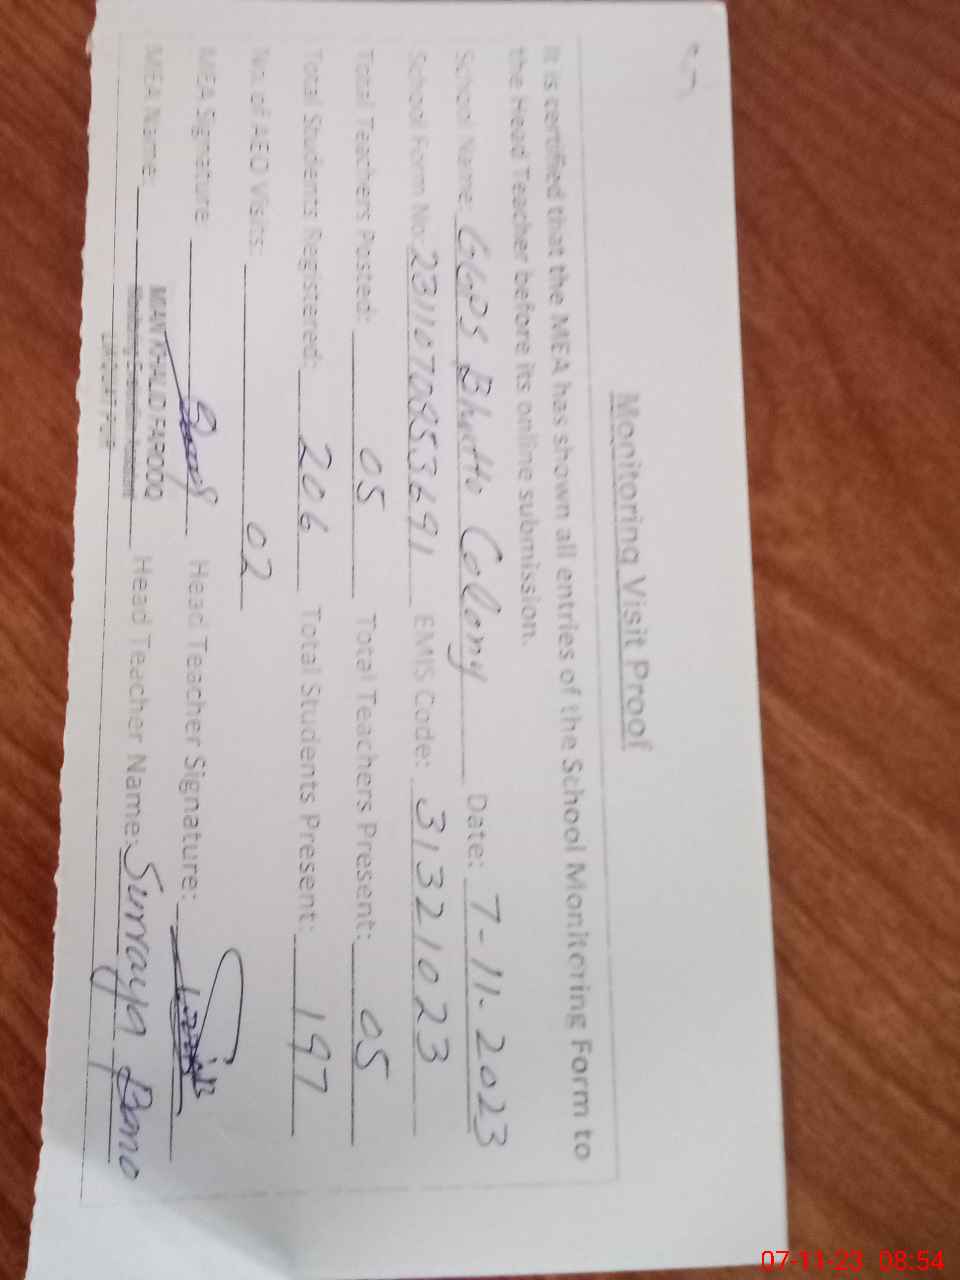 Monitoring Visit Proof
It is certified that the MEA has shown all entries of the School Monitoring Form to
the Head Teacher before its online submission.
School Name: GGPS Bhutto Colony Date: 7-11-2023
School Form No: EMIS Code: 31321023
Total Teachers Posted: 05 Total Teachers Present: 05
Total Students Registered: 206 Total Students Present: 197
No. of AEO Visits: 02
MEA Signature: Head Teacher Signature:
MEA Name: MIAN KHALID FAROOQ Head Teacher Name: Surraya Bano
07-11-23 08:54